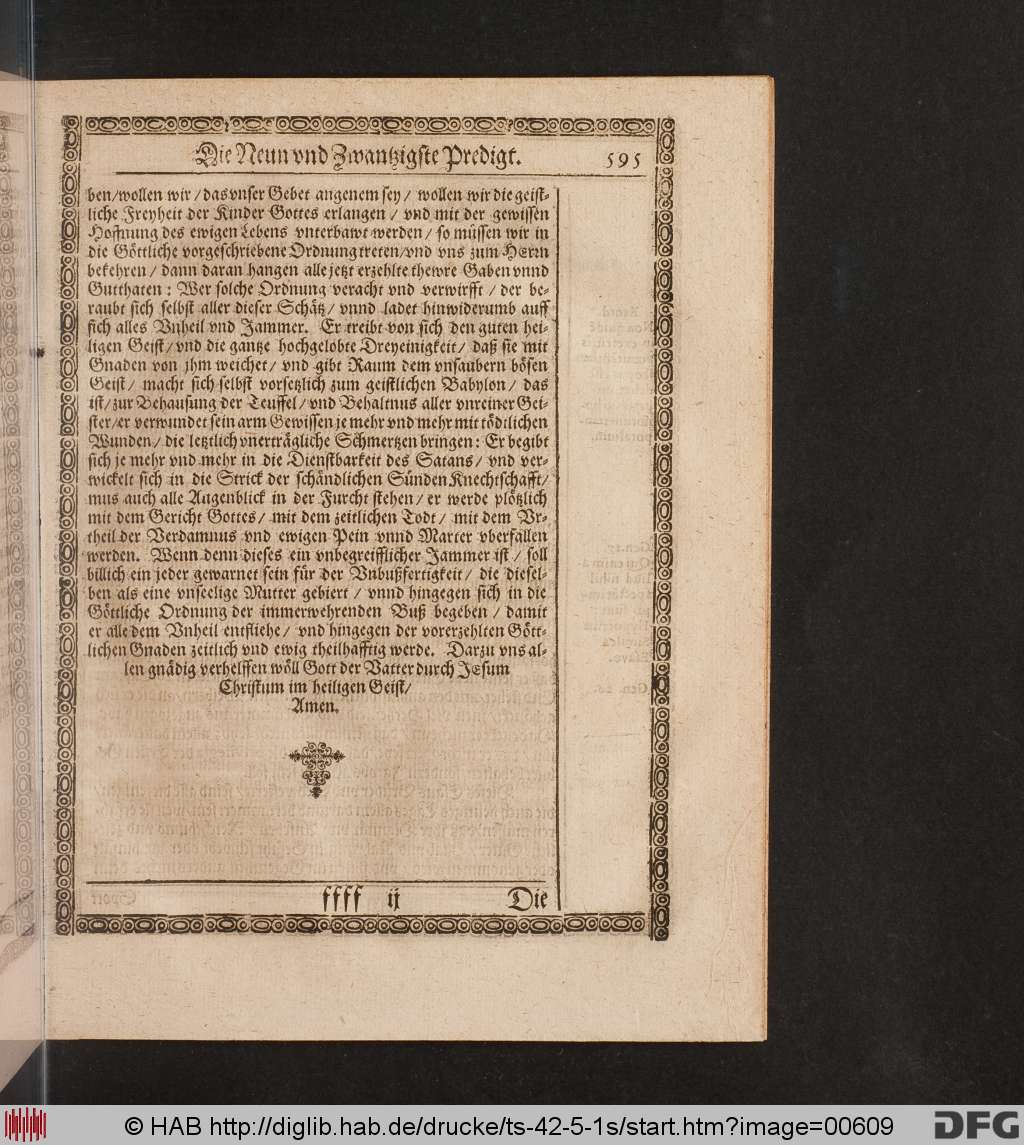 Die Neun vnd Zwantzigste Predigt. 595
ben/wollen wir/das vnser Gebet angenem sey/ wollen wir die geist-
liche Freyheit der Kinder Gottes erlangen/ vnd mit der gewissen
Hoffnung des ewigen Lebens vnterbawt werden/ so müssen wir in
die Göttliche vorgeschriebene Ordnung treten/vnd vns zum HErrn
bekehren/ dann daran hangen alle jetzt erzehlte thewre Gaben vnnd
Gutthaten: Wer solche Ordnung veracht vnd verwirfft/ der be-
raubt sich selbst aller dieser Schätz/ vnnd ladet hinwiderumb auff
sich alles Vnheil vnd Jammer. Er treibt von sich den guten hei-
ligen Geist/vnd die gantze hochgelobte Dreyeinigkeit/ daß sie mit
Gnaden von jhm weichet/ vnd gibt Raum dem vnsaubern bösen
Geist/ macht sich selbst vorsetzlich zum geistlichen Babylon/ das
ist/zur Behausung der Teuffel/vnd Behaltnus aller vnreiner Gei-
ster/er verwundet sein arm Gewissen je mehr vnd mehr mit tödtlichen
Wunden/ die letztlich vnerträgliche Schmertzen bringen: Er begibt
sich je mehr vnd mehr in die Dienstbarkeit des Satans/ vnd ver-
wickelt sich in die Strick der schändlichen Sünden Knechtschafft/
mus auch alle Augenblick in der Furcht stehen/ er werde plötzlich
mit dem Gericht Gottes/ mit dem zeitlichen Todt/ mit dem Vr-
theil der Verdamnus vnd ewigen Pein vnnd Marter vberfallen
werden. Wenn denn dieses ein vnbegreifflicher Jammer ist/ soll
billich ein jeder gewarnet sein für der Vnbußfertigkeit/ die diesel-
ben als eine vnseelige Mutter gebiert/ vnnd hingegen sich in die
Göttliche Ordnung der immerwehrenden Buß begeben/ damit
er alle dem Vnheil entfliehe/ vnd hingegen der vorerzehlten Gött-
lichen Gnaden zeitlich vnd ewig theilhafftig werde. Darzu vns al-
len gnädig verhelffen wöll Gott der Vatter durch JEsum
Christum im heiligen Geist/
Amen.
ffff ij Die
© HAB http://diglib.hab.de/drucke/ts-42-5-1s/start.htm?image=00609 DFG